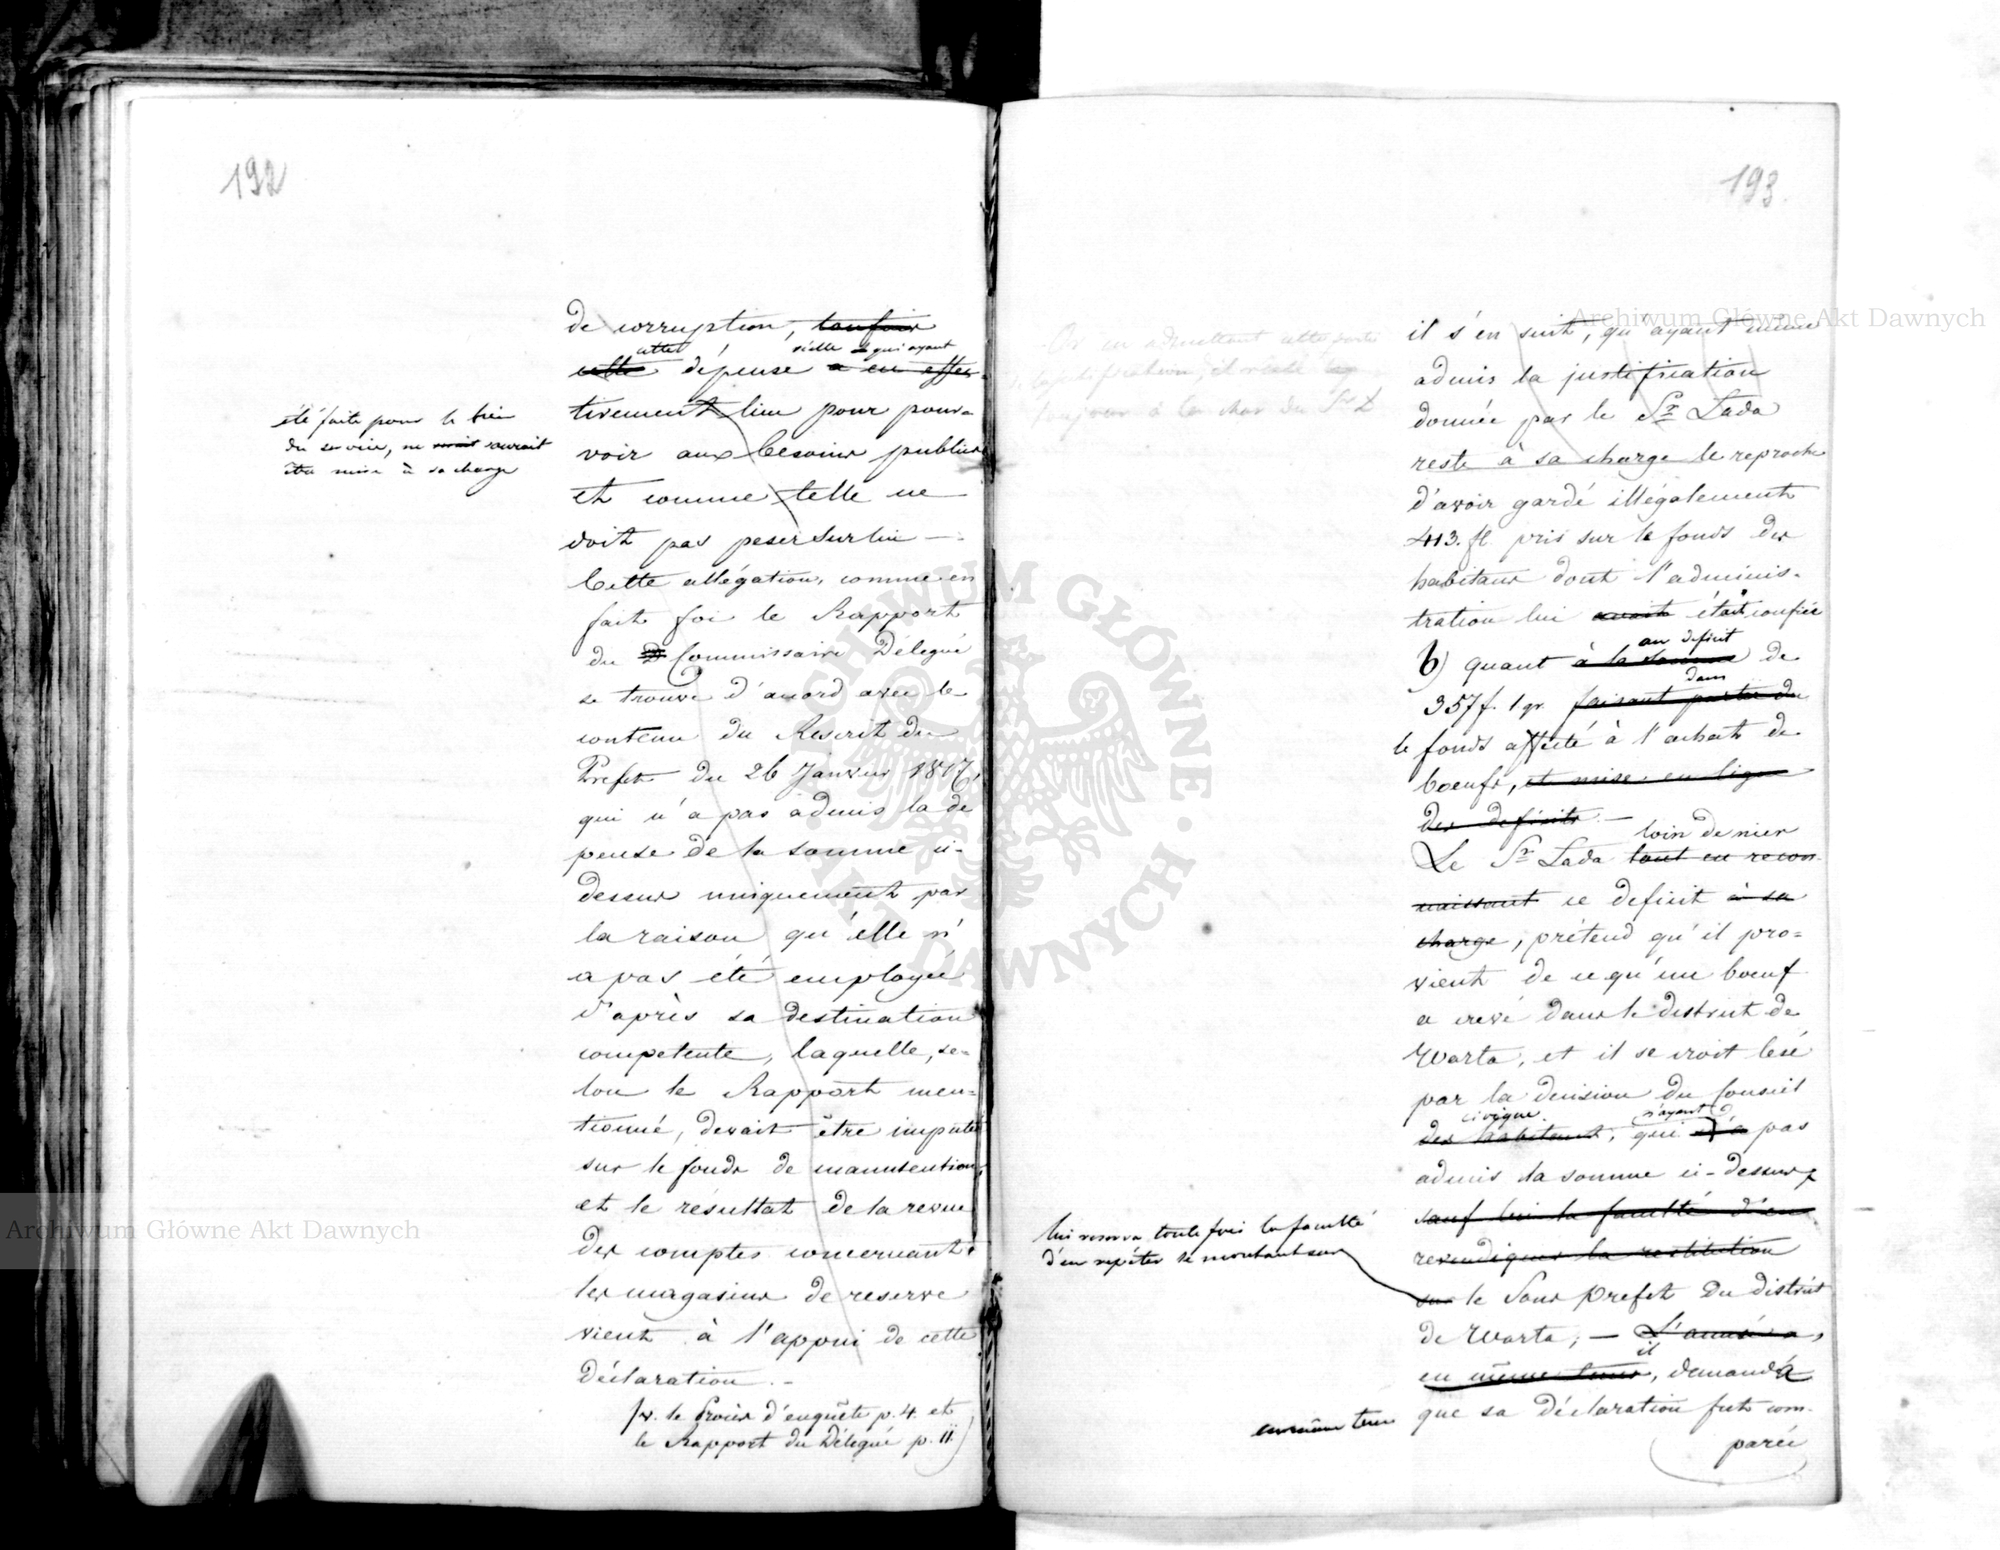 192
de corruption, toufois
cette dépense a eu effec-
cette réelle qui ayant
tivement lieu pour pour-
voir aux besoins publics
et comme telle ne
doit pas peser sur lui —
été faite pour le bien
du service, ne saurait
être mise à sa charge
Cette allégation, comme en
fait foi le Rapport
du Commissaire Délegué
se trouve d'accord avec le
contenu du Rescrit du
Prefet du 26 Janvier 1817,
qui n'a pas admis la de
pense de la somme ci-
dessus uniquement par
la raison qu'élle n'
a pas été employée
d'après sa destination
competente, laquelle, se-
lon le Rapport men-
tionné, devait être imputée
sur le fonds de manutention,
et le résultat de la revue
des comptes concernant
les magasins de reserve
vient à l'appui de cette
déclaration. -
(v. le Procès d'enquête p. 4. et
le Rapport du Délegué p. 11)
193.
Or en admettant cette
justification, il reste
toujours à la char du Sr Ł
il s'en suit, qu'ayant même
admis la justification
donnée par le Sr Łada
reste à sa charge le reproche
d'avoir gardé illégalement
413. fl. pris sur le fonds des
habitans dont l'adminis-
tration lui avoit était confiée
b) quant à la somme de
au deficit
357 f. 1 gr. faisant partie du
dans
le fonds affecté à l'achat de
boeufs, et mise en ligne
des deficits. —
Le Sr Łada tout en recon-
loin de nier
naissant ce deficit à sa
charge, prétend qu'il pro-
vient de ce qu'un boeuf
a crevé dans le district de
Warta, et il se croit lesé
par la decision du Conseil
civique n'ayant
des habitans, qui n'a pas
admis la somme ci-dessus,
sauf lui la faculté d'en
revendiquer la restitution
lui reserva toute fois la faculté
d'en repéter le montant sur
sur le Sous Prefet du district
de Warta; — L'accusé a,
il
en même tems, demanda
en même tems
que sa Déclaration fut com-
parée
Archiwum Główne Akt Dawnych
Archiwum Główne Akt Dawnych
ARCHIWUM GŁÓWNE · AKT DAWNYCH ·